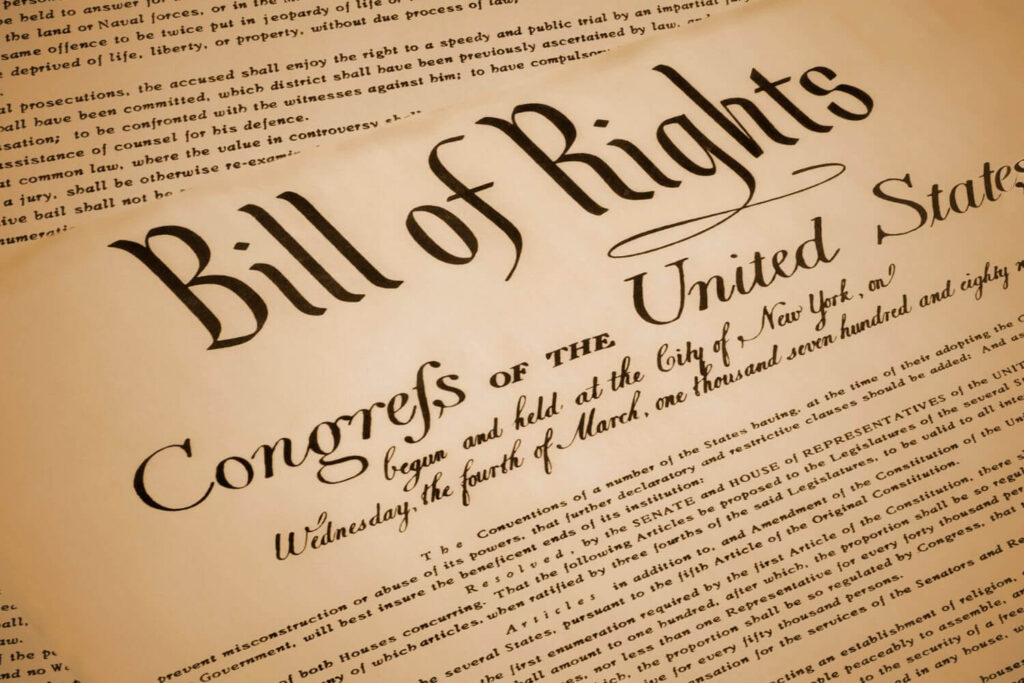 be held to answer for
the land or Naval forces, or in the
same offence to be twice put in jeopardy of life or
deprived of life, liberty, or property, without due process of law;
prosecutions, the accused shall enjoy the right to a speedy and public trial by an impartial
have been committed, which district shall have been previously ascertained by law, and
to be confronted with the witnesses against him; to have
of counsel for his defence.
common law, where the value in controversy
a jury, shall be otherwise
bail shall not be
Bill of Rights
Congreſs OF THE United States
begun and held at the City of New York, on
Wednesday, the fourth of March, one thousand seven hundred and eighty
The Conventions of a number of the States having, at the time of their adopting the
prevent misconstruction or abuse of its powers, that further declaratory and restrictive clauses should be added: And as
Government, will best insure the beneficent ends of its institution:
Resolved, by the SENATE and HOUSE of REPRESENTATIVES of the
of both Houses concurring. That the following Articles be proposed to the Legislatures of the several
of which articles, when ratified by three fourths of the said Legislatures, to be valid to all
Articles in addition to, and Amendment of the Constitution of the
several States, pursuant to the fifth Article of the Original Constitution.
the first enumeration required by the first Article of the Constitution, there
amount to one hundred, after which, the proportion shall be so
nor less than one Representative for every forty thousand
the proportion shall be so regulated by Congress, that
for every fifty thousand persons.
for the services of the Senators and
an establishment of religion,
people peaceably to assemble,
to the security of a
in any house,